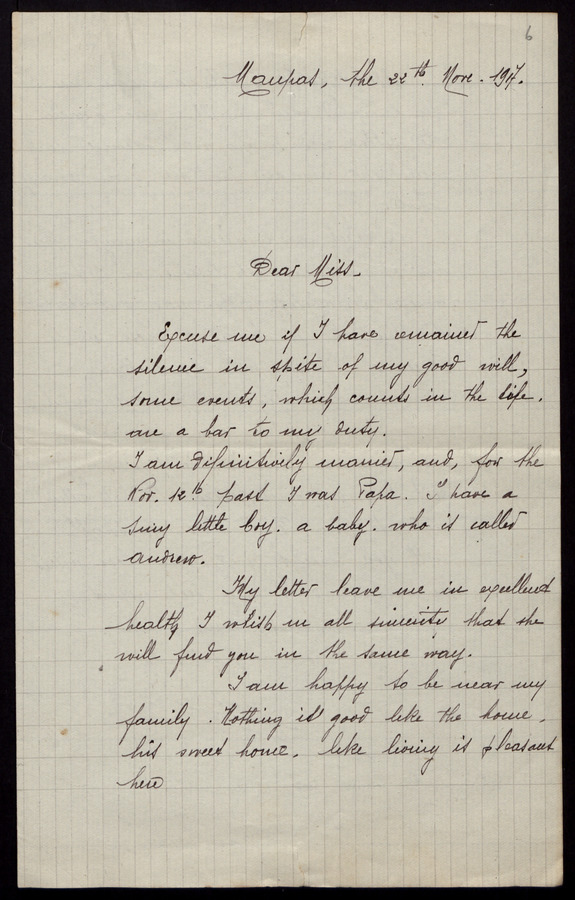 6
Maupas, the 22th Nove. 1917.
Dear Miss.
Excuse me if I have remained the
silence in spite of my good will,
some events, which counts in the life.
are a bar to my duty.
I am difinitively maried, and, for the
Nov. 12th past I was Papa. I have a
tiny little boy. a baby. who is called
andrew.
My letter leave me in excellent
health, I whish in all sincerity that she
will find you in the same way.
I am happy to be near my
family. Nothing is good like the home,
his sweet home. like living is pleasant
here